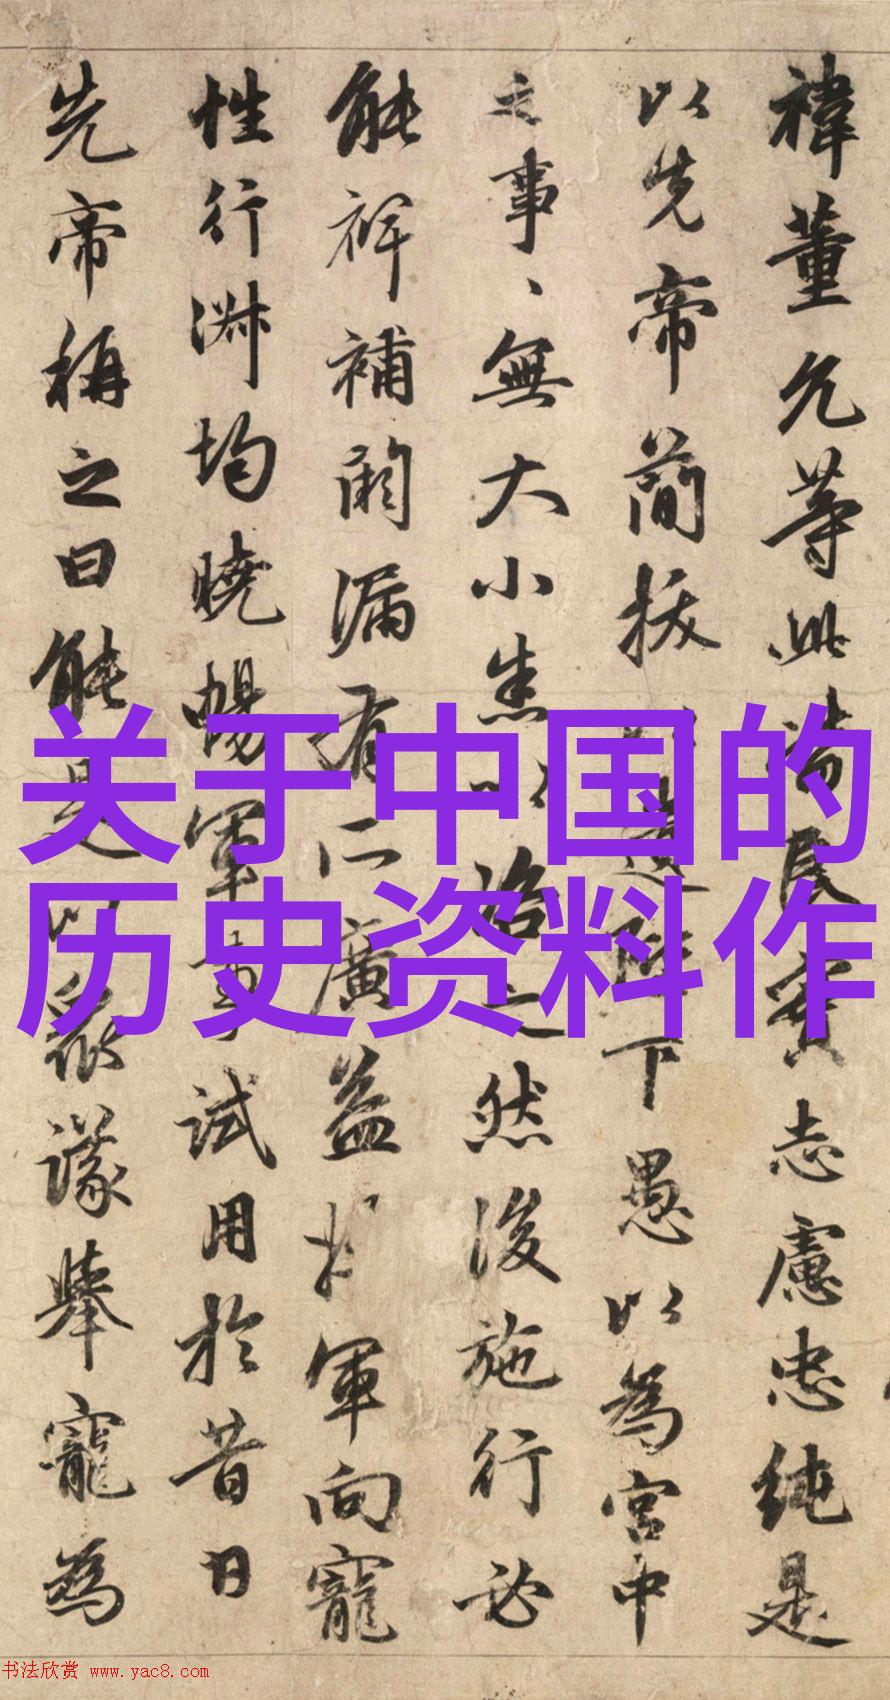 关于中国的
历史资料作
禕董允等此皆良實志慮忠純是
以先帝簡拔以遺陛下愚以為宮中
之事、無大小悉以諮之然後施行必
能裨補闕漏有所廣益將軍向寵
性行淑均曉暢軍事試用於昔日
先帝稱之曰能是以眾議舉寵為
书法欣赏 www.yac8.com